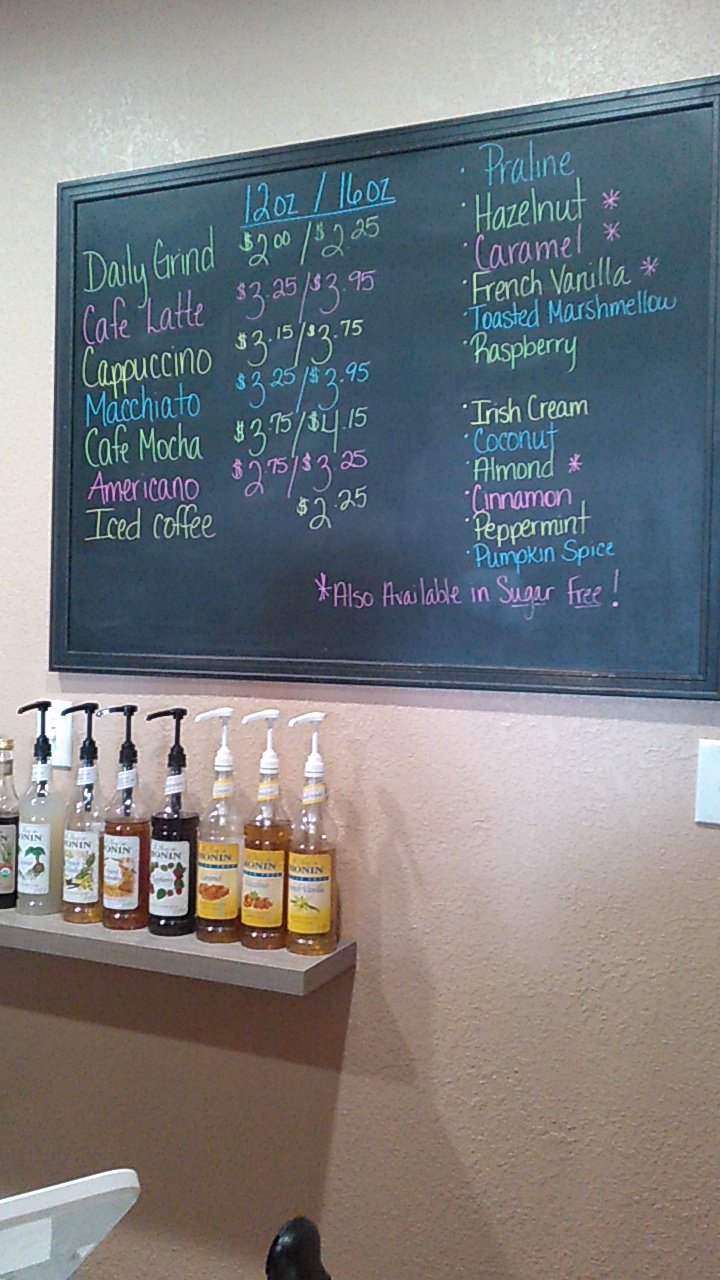 12oz / 16oz
Daily Grind $2.00 / $2.25
Cafe Latte $3.25 / $3.95
Cappuccino $3.15 / $3.75
Macchiato $3.25 / $3.95
Cafe Mocha $3.75 / $4.15
Americano $2.75 / $3.25
Iced coffee $2.25
· Praline
· Hazelnut *
· Caramel *
· French Vanilla *
· Toasted Marshmellow
· Raspberry
· Irish Cream
· Coconut
· Almond *
· Cinnamon
· Peppermint
· Pumpkin Spice
*Also Available in Sugar Free!
MONIN
Caramel
MONIN
MONIN